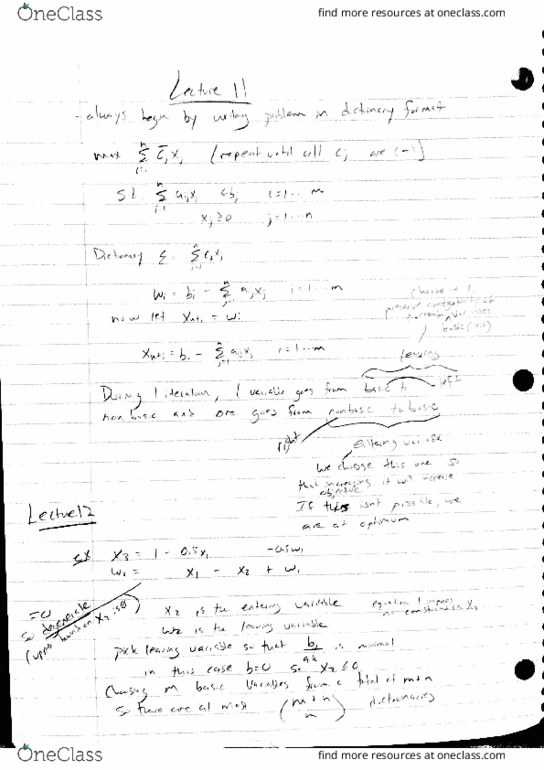 OneClass
find more resources at oneclass.com
Lecture 11
- always begin by writing problem in dictionary format
max Σ cⱼxⱼ (repeat until all cⱼ are (-))
st Σ aᵢⱼxⱼ ≤ bᵢ i=1...m
xⱼ ≥ 0 j=1...n
Dictionary ξ = Σ cⱼxⱼ
wᵢ = bᵢ - Σ aᵢⱼxⱼ i=1...m
now let xₙ₊ᵢ = wᵢ
xₙ₊ᵢ = bᵢ - Σ aᵢⱼxⱼ i=1...m
preserve nonnegativity of
variables
leaving
During 1 iteration, 1 variable goes from basic to left
non basic and one goes from nonbasic to basic
right
entering variable
We choose this one so
that increasing it will increase
objective
If this isnt possible, we
are at optimum
Lecture 12
ex x₃ = 1 - 0.5x₁ -0.5w₁
w₂ = x₁ - x₂ + w₁
=0
so degenerate
(upper bound on x₂ is 0)
x₂ is the entering variable
equation 1 imposes
no constraint on x₂
w₂ is the leaving variable
pick leaving variable so that is minimal
in this case b=0 so x₂ ≤ 0
Choosing m basic variables from a total of m+n
so there are at most (m+n) dictionaries
OneClass
find more resources at oneclass.com